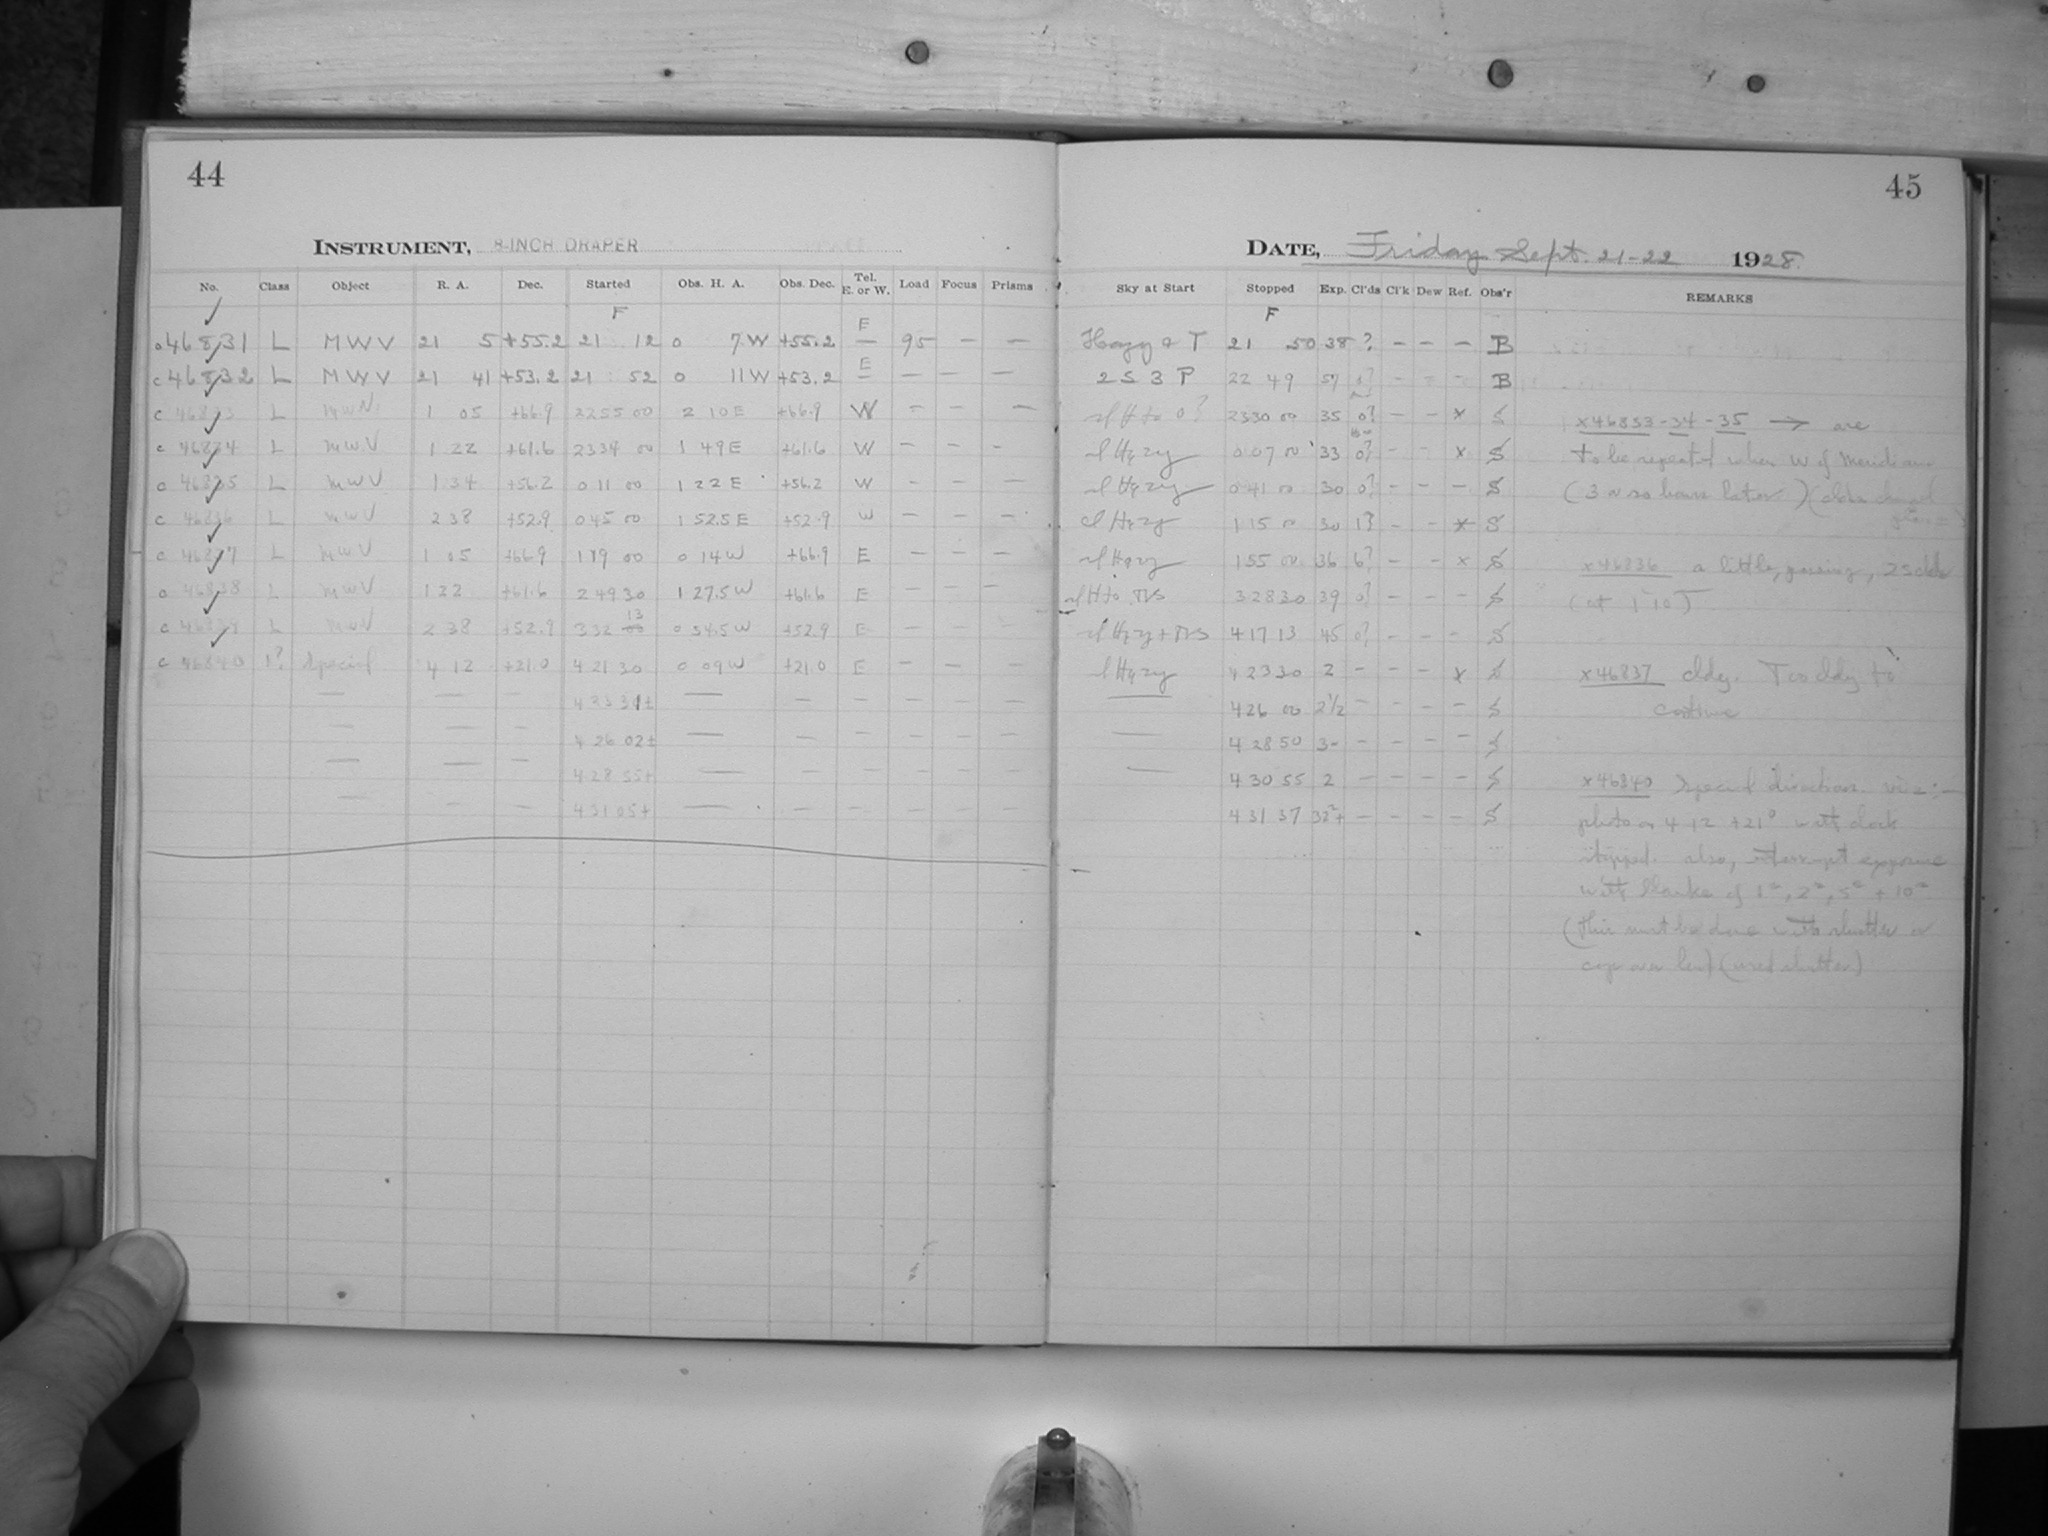 44
45
INSTRUMENT, 8-INCH DRAPER
DATE, Friday Sept. 21-22 1928.
No. Class Object R. A. Dec. Started Obs. H. A. Obs. Dec. Tel. E. or W. Load Focus Prisms Sky at Start Stopped Exp. Cl'ds Cl'k Dew Ref. Obs'r REMARKS
F F
46831 L M W V 21 5 +55.2 21 12 0 7 W +55.2 E 95 — — Hazy & T 21 50 38 ? — — — B
c 46832 L M W V 21 41 +53.2 21 52 0 11 W +53.2 E — — — 2 S 3 P 22 49 57 0? — — — B
c L 1 05 +66.9 22 55 00 2 10 E +66.9 W — — — 23 30 00 35 0? — — x S x46853-34-35 → are
c 46834 L MWV 1 22 +61.6 23 34 00 1 49 E +61.6 W — — — Hazy 0 07 00 33 0? — — x S to be repeated when W of Meridian
46835 L MWV 1 34 +56.2 0 11 00 1 22 E +56.2 W — — — Hazy 0 41 00 30 0? — — — S (3 or so hours later)
c 46836 L MWV 2 38 +52.9 0 45 00 1 52.5 E +52.9 W — — — Hazy 1 15 00 30 1? — — x S
c 46837 L MWV 1 05 +66.9 1 19 00 0 14 W +66.9 E — — — Hazy 1 55 00 36 6? — — x S x46836 a little, passing,
46838 L MWV 1 22 +61.6 2 49 30 1 27.5 W +61.6 E — — — 3 28 30 39 0? — — — S
c L MWV 2 38 +52.9 3 32 13 0 54.5 W +52.9 E — — — 4 17 13 45 0? — — — S
c 46840 1? Special 4 12 +21.0 4 21 30 0 09 W +21.0 E — — — Hazy 4 23 30 2 — — — x S x46837 cldy. Too cldy to
— — — — — — — — — — 4 26 00 2½ — — — — S continue
— — — 4 26 02± — — — — — — — 4 28 50 3- — — — — S
— — — 4 28 55± — — — — — — — 4 30 55 2 — — — — S x46840 Special directions viz:—
— — — 4 31 05± — — — — — — 4 31 37 — — — — S photo on 4 12 +21° with clock
stopped. also, interrupt exposure
with blanks of 1ˢ, 2ˢ, 5ˢ + 10ˢ
(this must be done with shutter or
cap over lens) (used shutter)